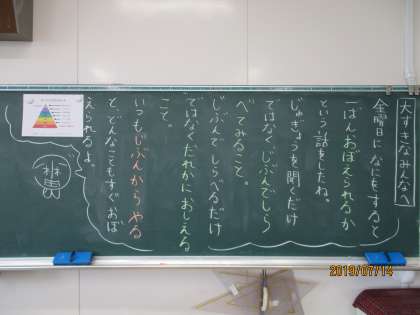 大すきなみんなへ
金曜日に なにをすると
一ばんおぼえられるか
という話をしたね。
じゅぎょうを聞くだけ
ではなく、じぶんでしら
べてみること。
じぶんで しらべるだけ
ではなく だれかに おしえる
こと。
いつもじぶんから やる
と、どんなことも すぐ おぼ
えられるよ。
2019/07/14